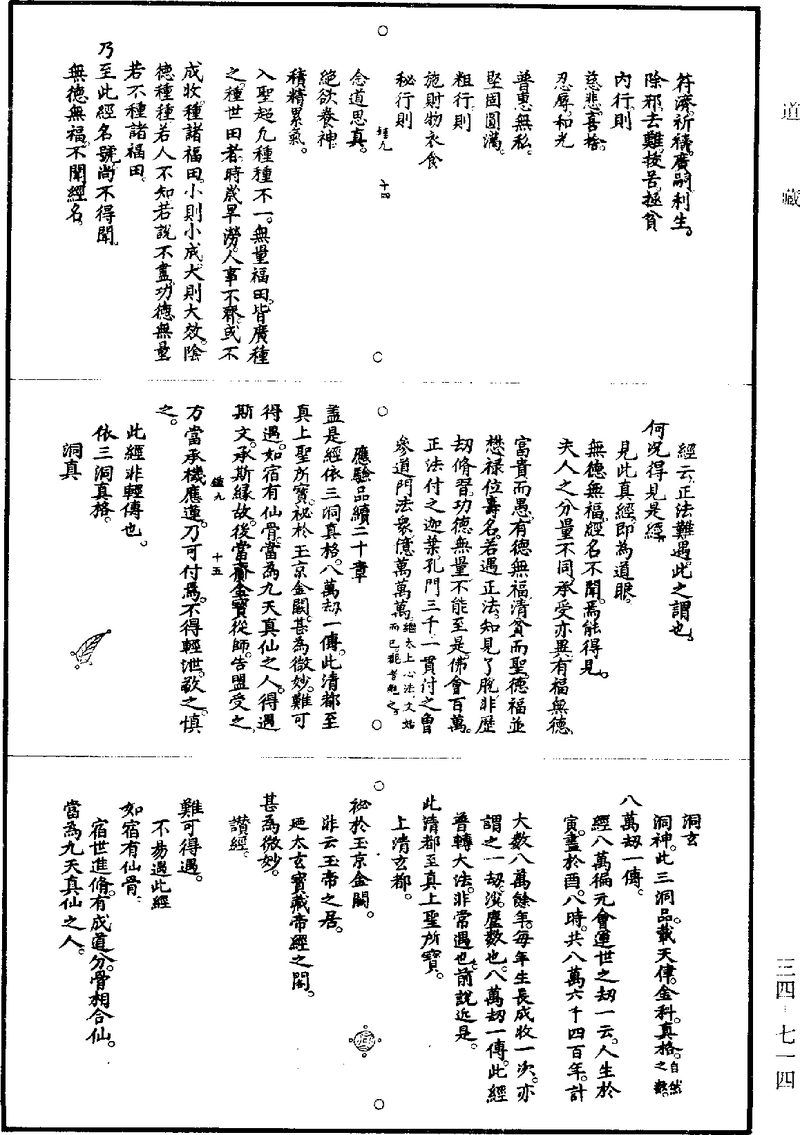 道藏
符濟祈禱廣嗣利生。
除邪去難拔苦拯貧
內行則
慈悲喜捨。
忍辱和光
普惠無私。
堅固圓滿。
粗行則
施財物衣食
秘行則
經九 十四
念道思真。
絕欲養神。
積精累氣。
入聖超凡種種不一。無量福田。皆廣種
之種世田者。時歲旱澇。人事不齊。或不
成收。種諸福田。小則小成。大則大效。陰
德種種若人不知若說不盡功德無量
若不種諸福田。
乃至此經名號尚不得聞。
無德無福。不聞經名。
經云正法難遇。此之謂也。
何況得見是經。
見此真經。即為道眼。
無德無福。經名不聞。焉能得見。
夫人之分量不同。承受亦異。有福無德。
富貴而愚。有德無福。清貧而聖。德福並
懋。祿位壽名。若遇正法。知見了脫。非歷
劫脩習。功德無量不能至是。佛會百萬。
正法付之迦葉孔門三千。一貫付之曾
參道門法眾。億萬萬萬。繼太上心法。文始
而已。
應驗品續二十章
蓋是經依三洞真格。八萬劫一傳。此清都至
真上聖所寶。祕於玉京金闕。甚為微妙。難可
得遇。如宿有仙骨。當為九天真仙之人。得遇
斯文。承斯緣故。後當齎金寶從師。告盟受之
經九 十五
方當承機應運。乃可付焉。不得輕泄。敬之慎
之。
此經非輕傳也。
依三洞真格。
洞真
洞玄
洞神。此三洞品。載天律。金科。真格。自然
八萬劫一傳。
經八萬徧元會運世之劫一云。人生於
寅。盡於酉。八時。共八萬六千四百年。計
大數八萬餘年。每年生長成收一次。亦
謂之一劫。塵數也。八萬劫一傳。此經
普轉大法。非常遇也。前說近是。
此清都至真上聖所寶。
上清玄都。
祕於玉京金闕。
非云玉帝之居。
廼太玄寶藏帝經之閣。
甚為微妙。
讚經。
難可得遇。
不易遇此經
如宿有仙骨。
宿世進脩。有成道分。骨相合仙。
當為九天真仙之人。
三四－七一四